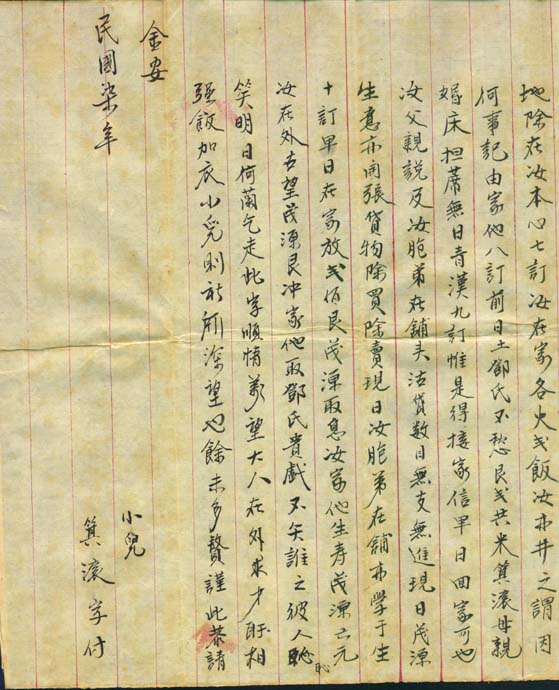 地除在汝本心七訂汝在家各火弍飯汝亦井之謂因
何事記由家他八訂前日土鄧氏不愁艮弍共米箕滾母親
婚床担蓆無日青漢九訂惟是得接家信早日回家可也
汝父親說及汝胞弟在舖头沽貨数日無支無進現日茂源
生意亦開張貨物除買除賣現日汝胞弟在舖亦学于生
十訂早日在家放弍佰艮茂源取息汝家他生寿茂源云元
汝在外古望茂源艮冲家他取鄧氏貴戲不矢誰之彼人恥
笑明日何蘭乞走此字順情萬望大人在外求才旺相
强飯加衣小兒則祈所深望也餘未多贅謹此恭請
金安
民國柒年
小兒
箕滾字付